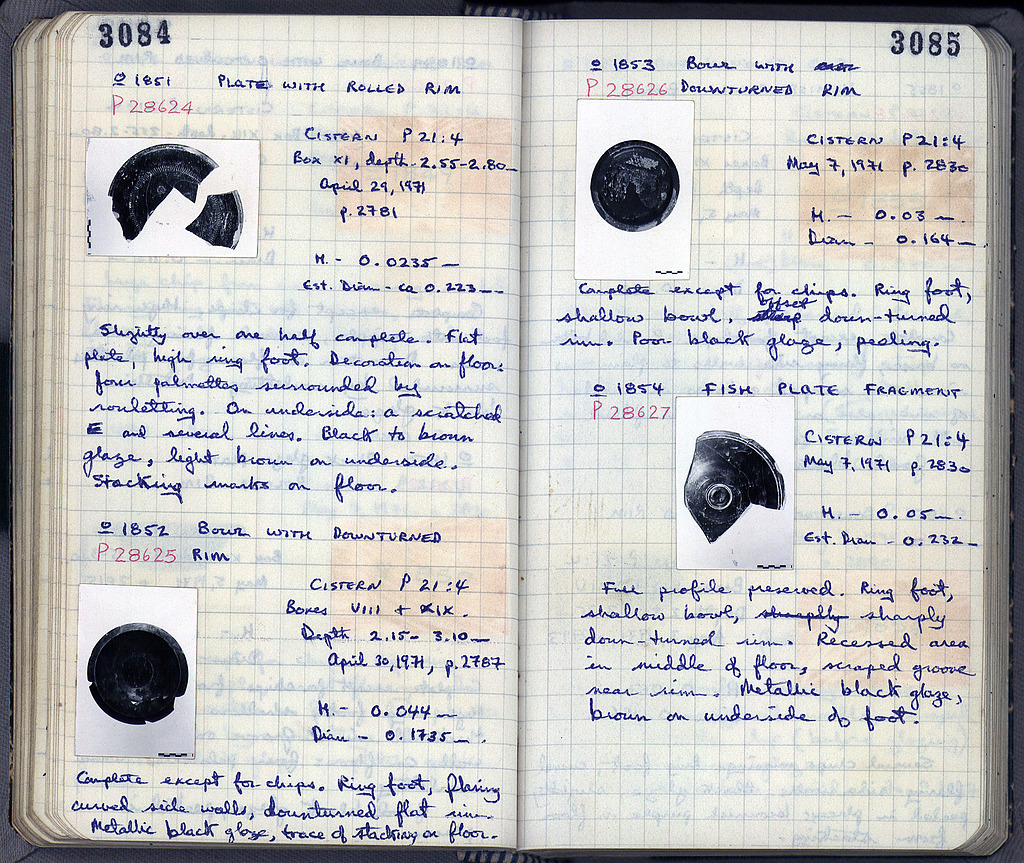 3084
o 1851 PLATE WITH ROLLED RIM
P 28624
CISTERN P 21:4
Box XI, depth - 2.55-2.80 m
April 29, 1971
p. 2781
H. - 0.0235 m
Est. Diam - ca 0.223 m
Slightly over one half complete. Flat
plate, high ring foot. Decoration on floor:
four palmettes surrounded by
rouletting. On underside: a scratched
E and several lines. Black to brown
glaze, light brown on underside.
Stacking marks on floor.
o 1852 BOWL WITH DOWNTURNED
P 28625 RIM
CISTERN P 21:4
Boxes VIII + XIX.
Depth 2.15 - 3.10 m
April 30, 1971, p. 2787
H. - 0.044 m
Diam - 0.1735 m.
Complete except for chips. Ring foot, flaring
curved side walls, downturned flat rim.
Metallic black glaze, trace of stacking on floor.
3085
o 1853 BOWL WITH
P 28626 DOWNTURNED RIM
CISTERN P 21:4
May 7, 1971 p. 2830
H. - 0.03 m.
Diam - 0.164 m.
Complete except for chips. Ring foot,
shallow bowl, offset down-turned
rim. Poor black glaze, peeling.
o 1854 FISH PLATE FRAGMENT
P 28627
CISTERN P 21:4
May 7, 1971 p. 2830
H. - 0.05 m.
Est. Diam - 0.232 m
Full profile preserved. Ring foot,
shallow bowl, sharply
down-turned rim. Recessed area
in middle of floor, scraped groove
near rim. Metallic black glaze,
brown on underside of foot.